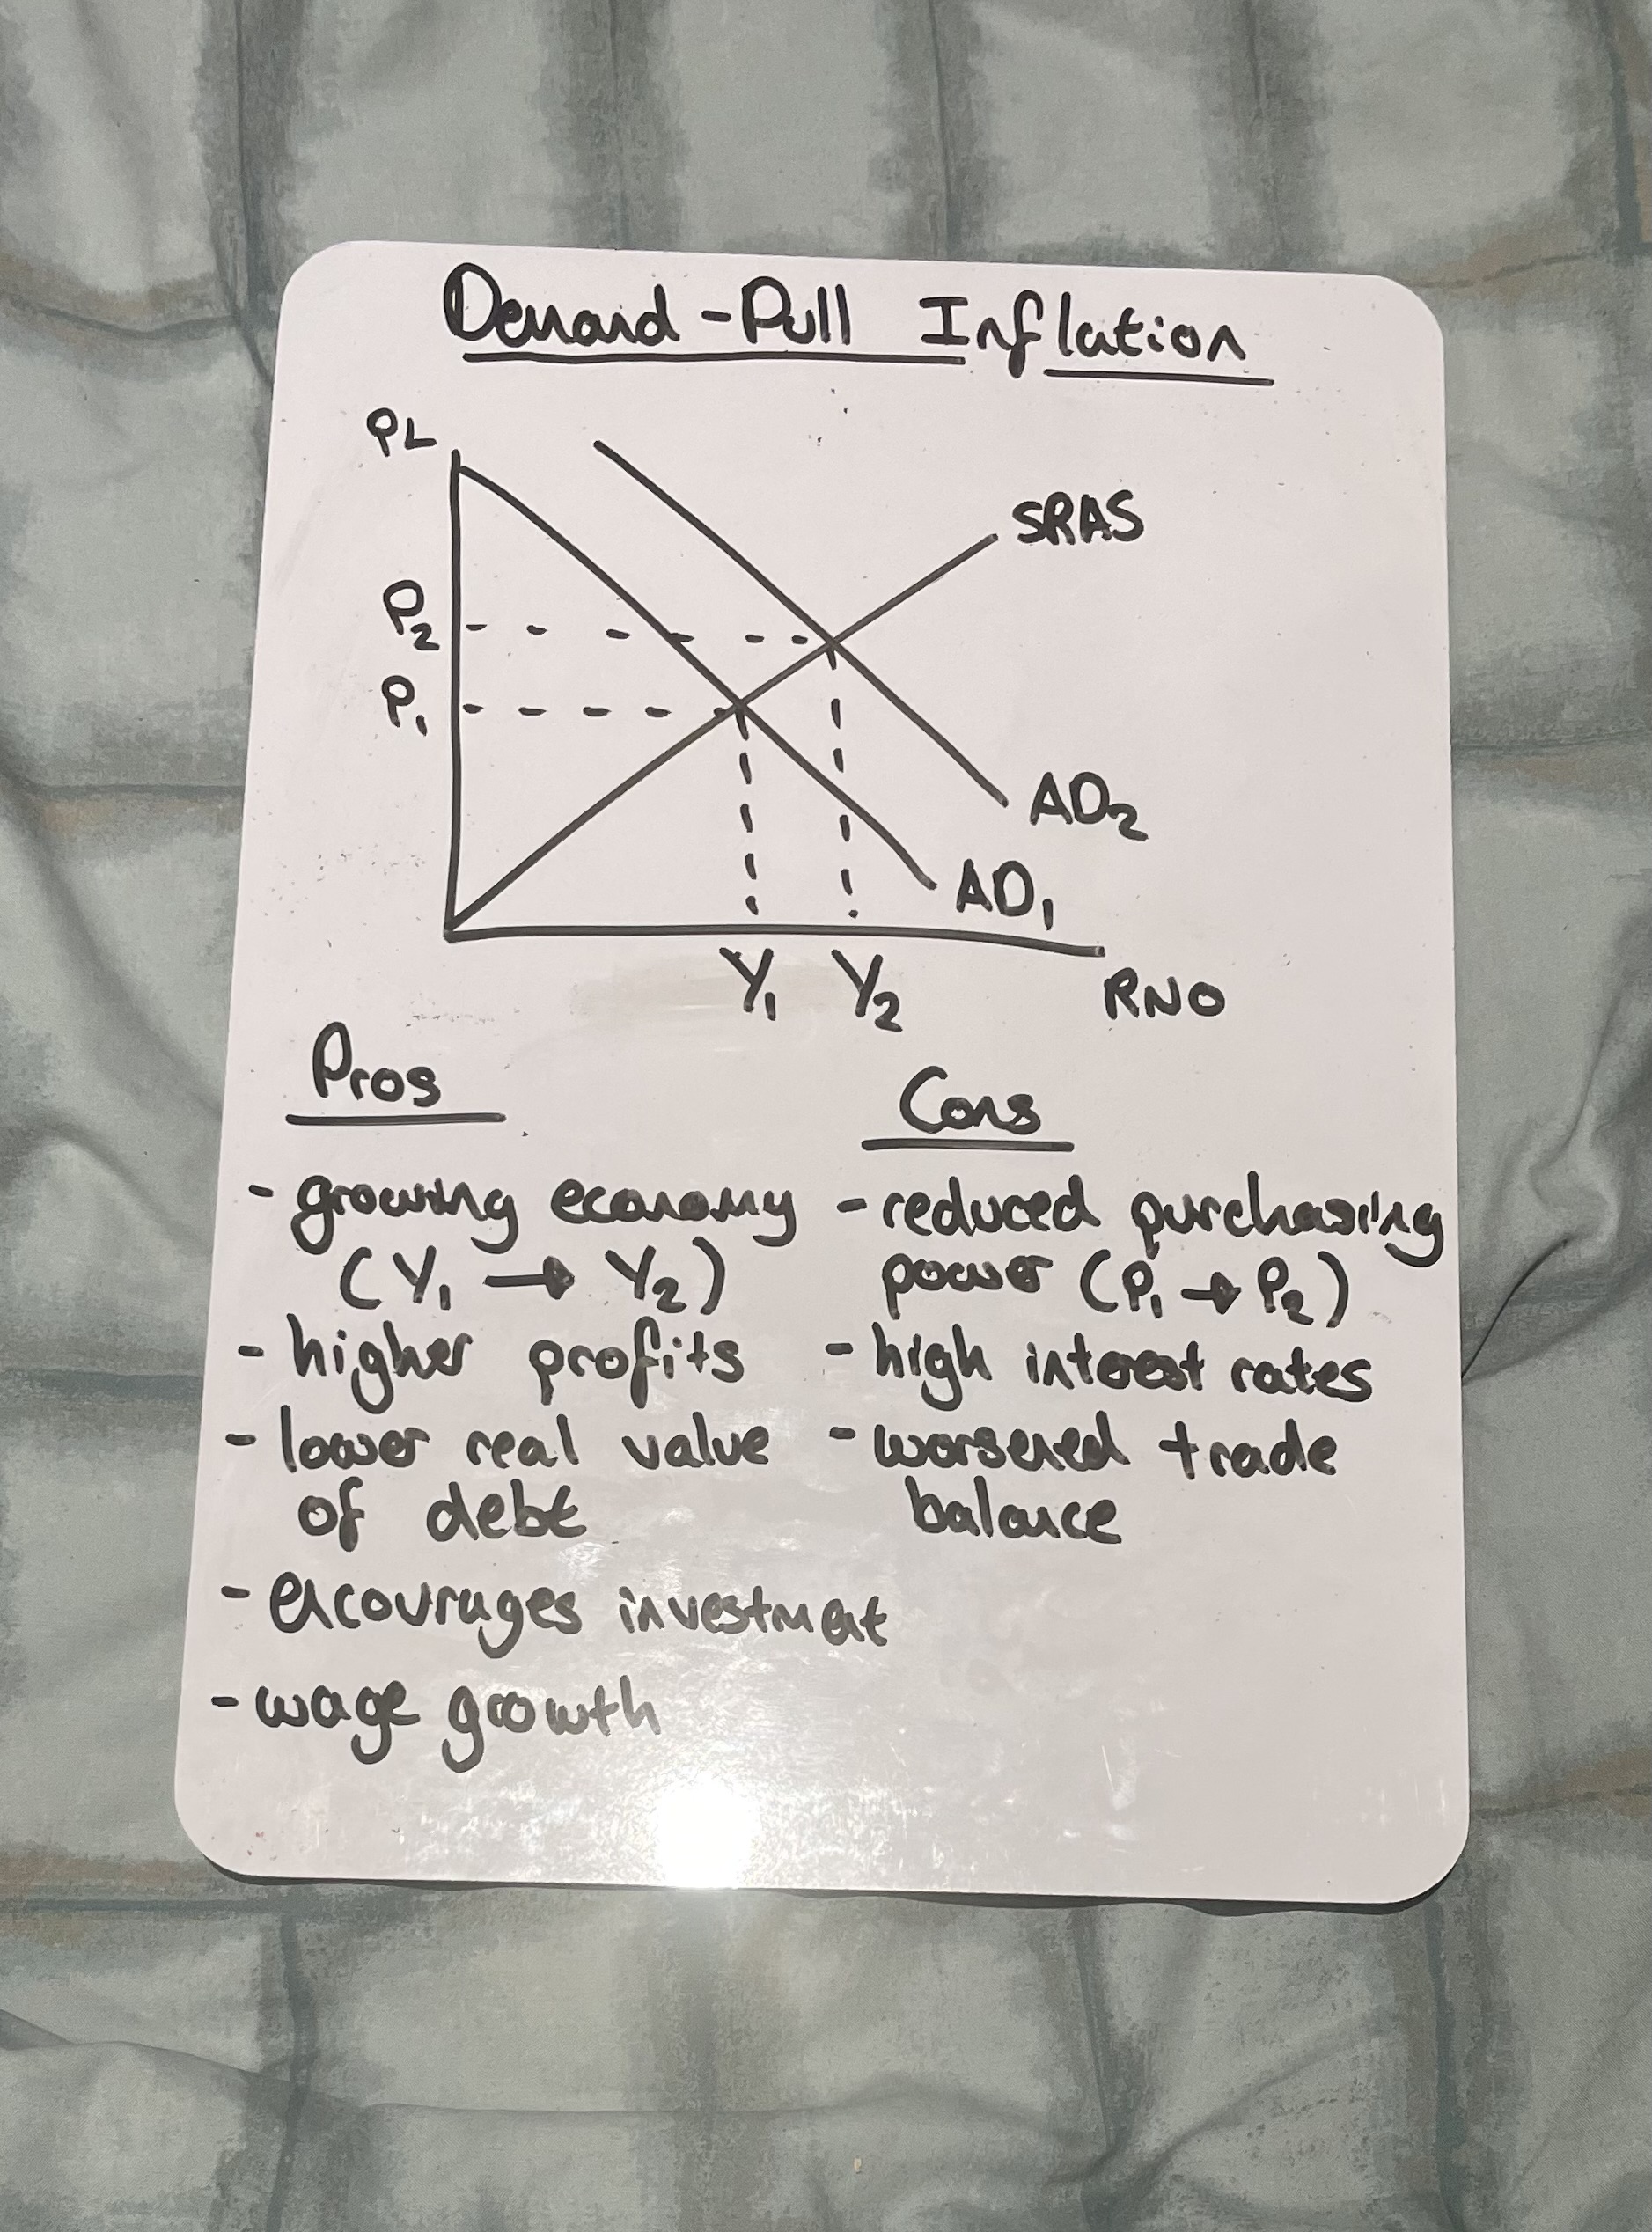 Demand-Pull Inflation
PL
SRAS
P2
P1
AD2
AD1
Y1 Y2
RNO
Pros
- growing economy
(Y1 → Y2)
- higher profits
- lower real value
of debt
- encourages investment
- wage growth
Cons
- reduced purchasing
power (P1 → P2)
- high interest rates
- worsened trade
balance